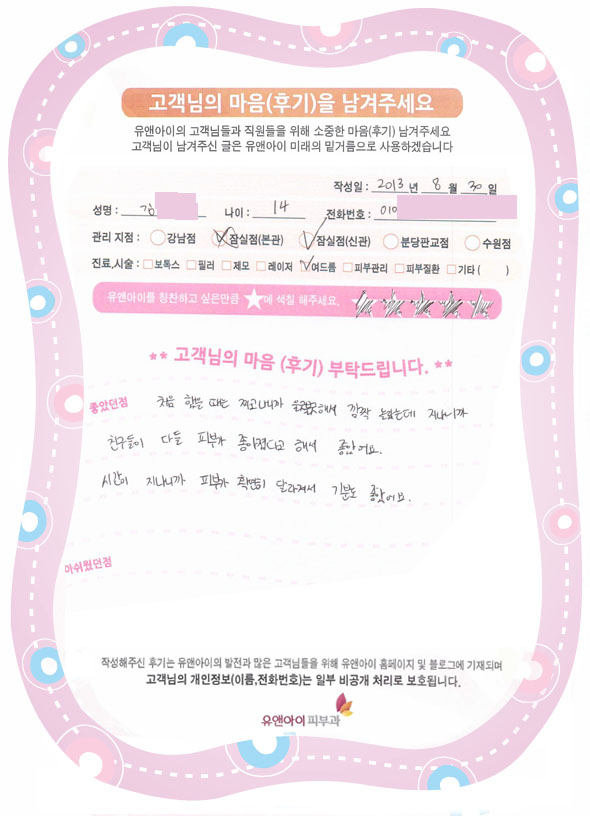 고객님의 마음(후기)을 남겨주세요
유앤아이의 고객님들과 직원들을 위해 소중한 마음(후기) 남겨주세요
고객님이 남겨주신 글은 유앤아이 미래의 밑거름으로 사용하겠습니다
작성일 : 2013 년 8 월 30 일
성명 : 김 나이 : 14 전화번호 : 010
관리 지점 : 강남점 잠실점(본관) 잠실점(신관) 분당판교점 수원점
진료,시술 : 보톡스 필러 제모 레이저 여드름 피부관리 피부질환 기타 ( )
유앤아이를 칭찬하고 싶은만큼 ★에 색칠 해주세요.
** 고객님의 마음 (후기) 부탁드립니다. **
좋았던점 처음 했을 때는 찌고나니까 해서 깜짝 놀랐는데 지나니까
친구들이 다들 피부가 좋아졌다고 해서 좋았어요.
시간이 지나니까 피부가 확연히 달라져서 기분도 좋았어요.
아쉬웠던점
작성해주신 후기는 유앤아이의 발전과 많은 고객님들을 위해 유앤아이 홈페이지 및 블로그에 기재되며
고객님의 개인정보(이름,전화번호)는 일부 비공개 처리로 보호됩니다.
유앤아이피부과